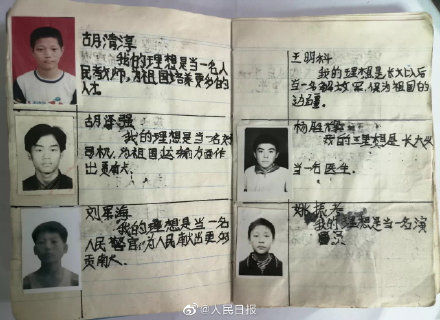 胡清淳
我的理想是当一名人
民教师,为祖国培养更多的
人才
胡海强
我的理想是当一名
司机,为祖国运输力工作
出贡献。
刘军海
我的理想是当一名
人民警官,为人民献出更多
贡献。
王明科
我的理想是长大以后
当一名解放军,保为祖国的
边疆。
杨胜
我的理想是长大
当一名医生。
姚振
我的理想是当名演
员
@人民日报